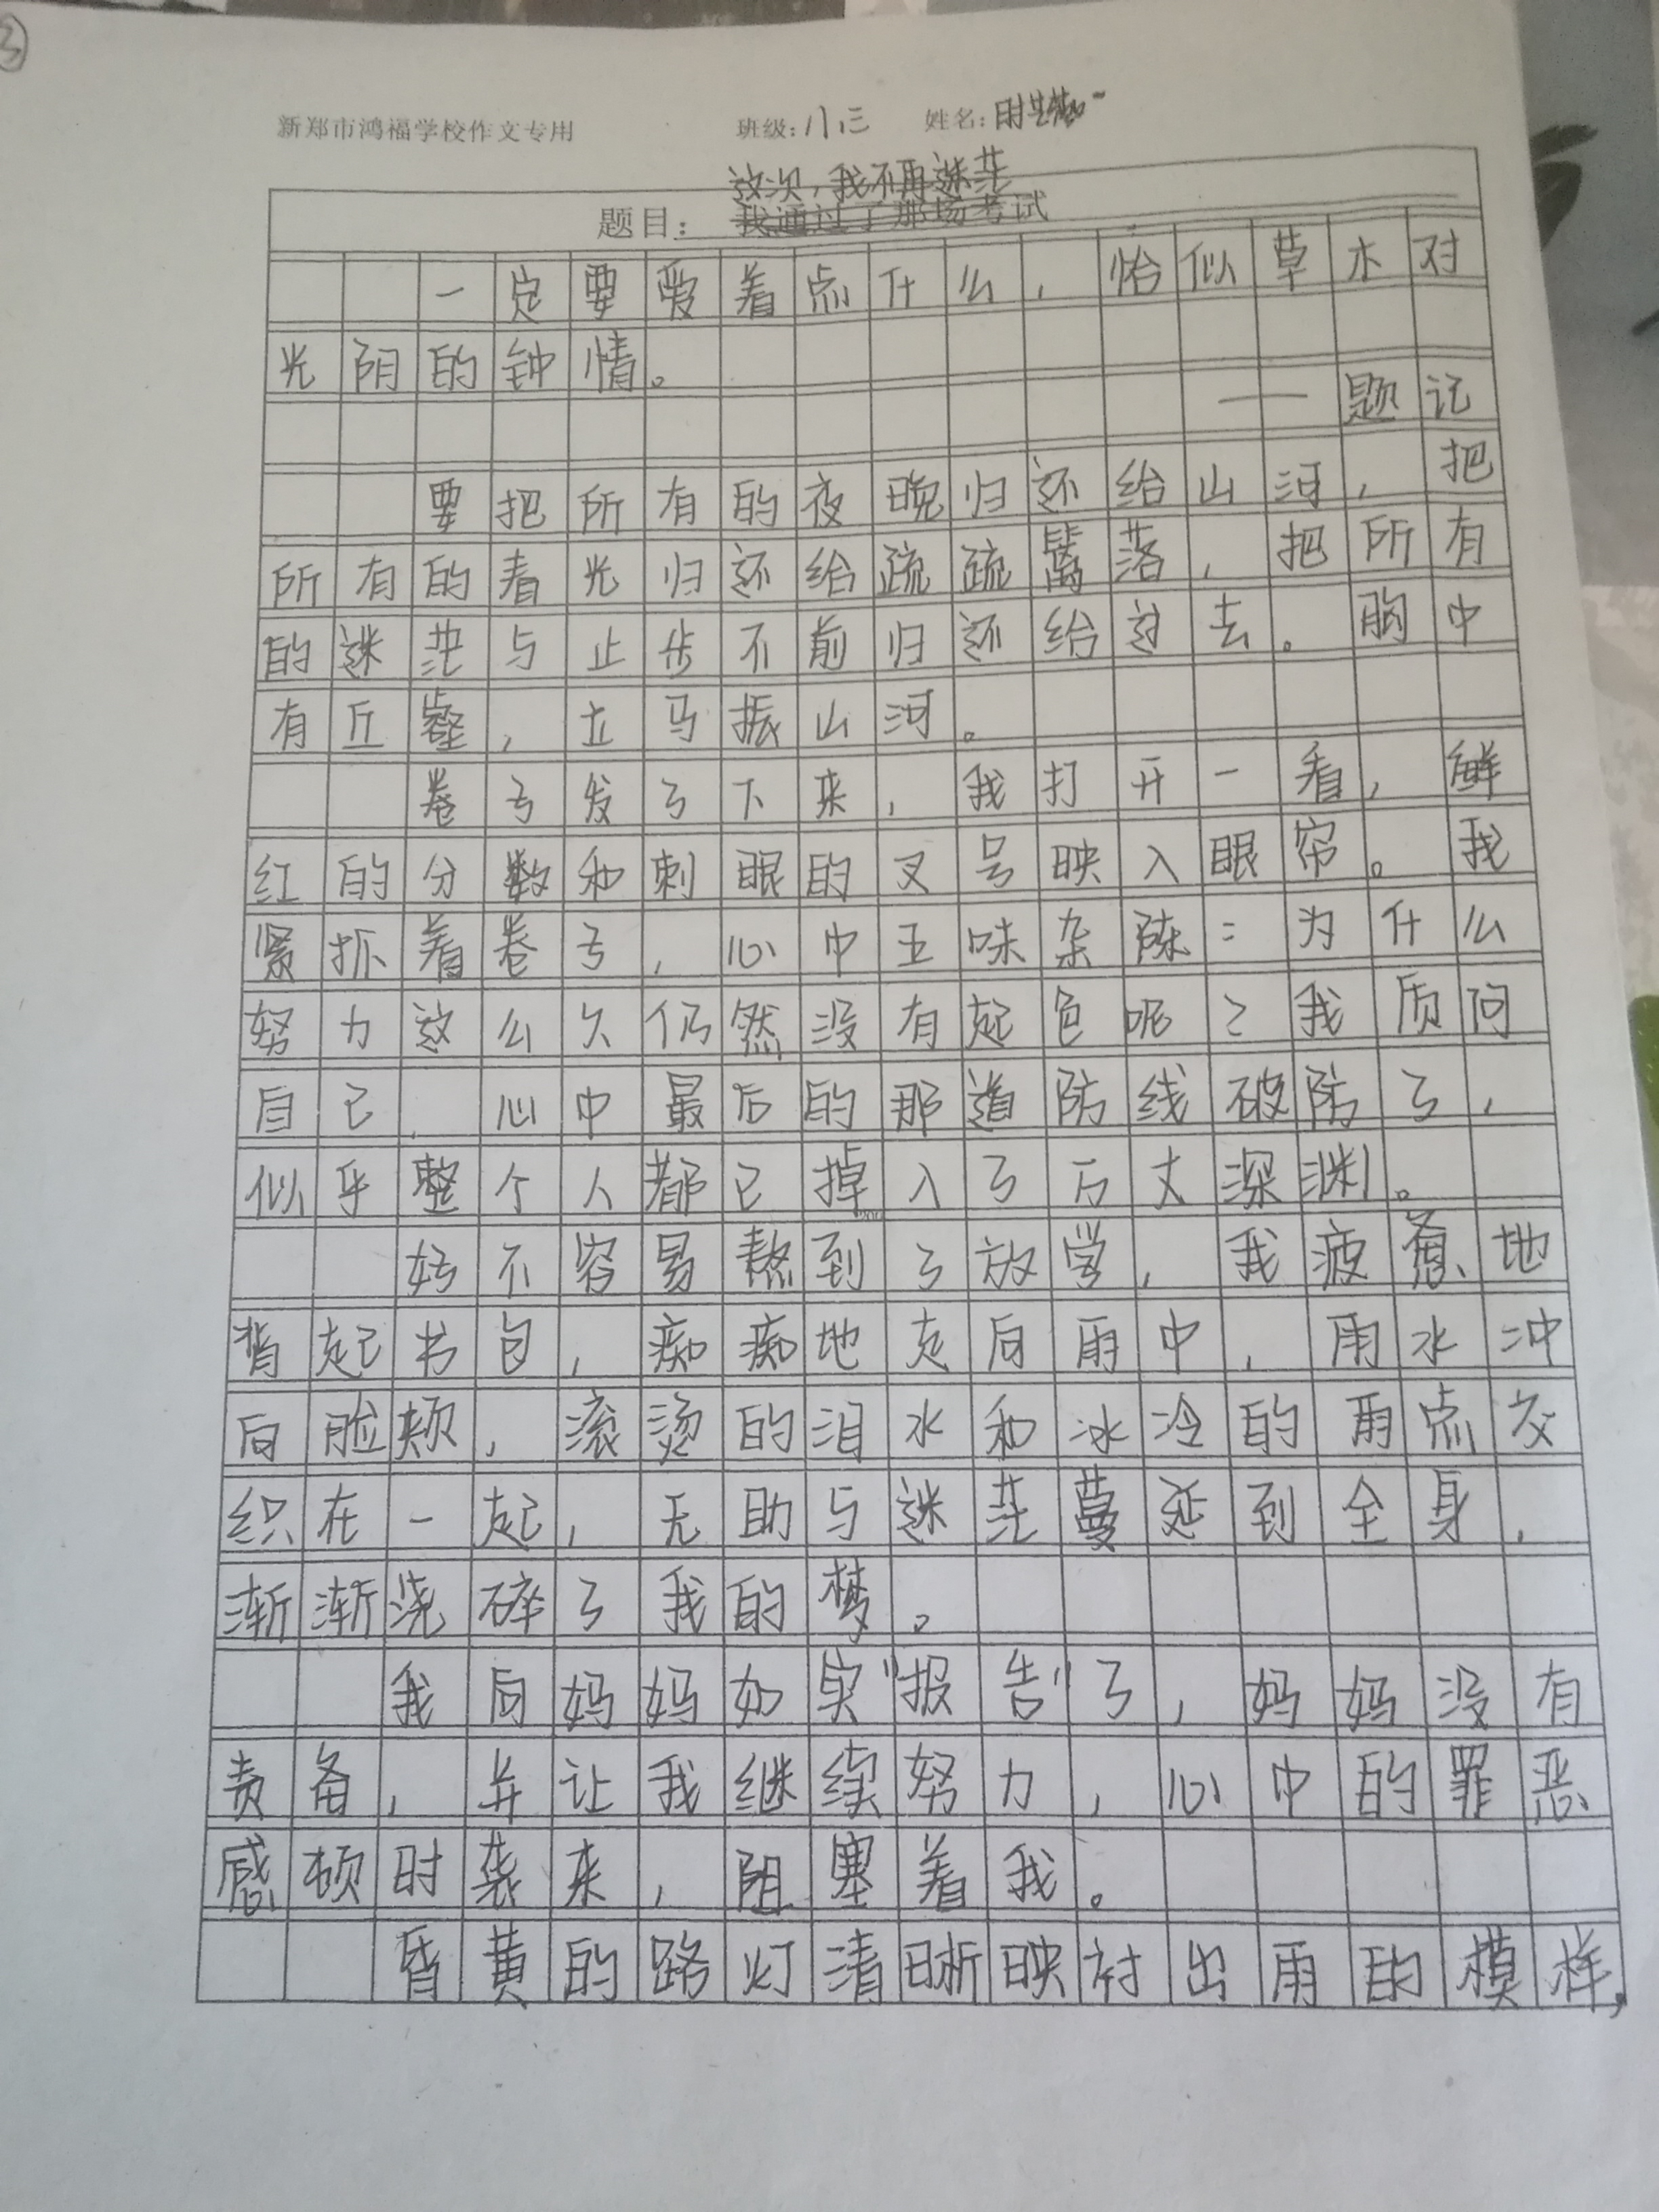 ③
新郑市鸿福学校作文专用 班级:八三 姓名:
这次,我不再迷茫
题目: 我通过了那场考试
一定要爱着点什么,恰似草木对
光阴的钟情。
——题记
要把所有的夜晚归还给山河,把
所有的春光归还给疏疏篱落,把所有
的迷茫与止步不前归还给过去。胸中
有丘壑,立马振山河。
卷子发了下来,我打开一看,鲜
红的分数和刺眼的叉号映入眼帘。我
紧抓着卷子,心中五味杂陈:为什么
努力这么久仍然没有起色呢?我质问
自己,心中最后的那道防线破防了,
似乎整个人都已掉入了万丈深渊。
200
好不容易熬到了放学,我疲惫地
背起书包,痴痴地走向雨中,雨水冲
向脸颊,滚烫的泪水和冰冷的雨点交
织在一起,无助与迷茫蔓延到全身,
渐渐浇碎了我的梦。
我向妈妈如实"报告"了,妈妈没有
责备,并让我继续努力,心中的罪恶
感顿时袭来,阻塞着我。
昏黄的路灯清晰映衬出雨的模样,